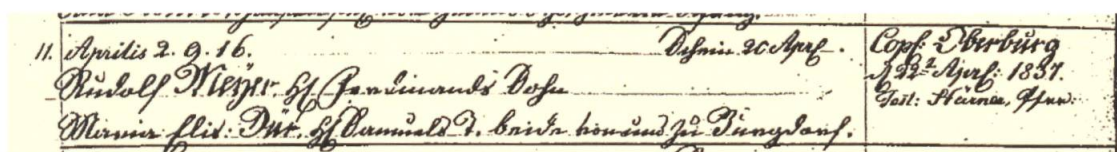 11. Aprilis 2. 9. 16. Schein 20 Aprl.
Rudolf Meyer, H. Ferdinands Sohn
Maria Elis: Dür, H. Samuels T. beide von und zu Burgdorf.
Copl: Oberburg
d. 22.ª Aprl: 1837.
Test: Stürner, Pfrr: